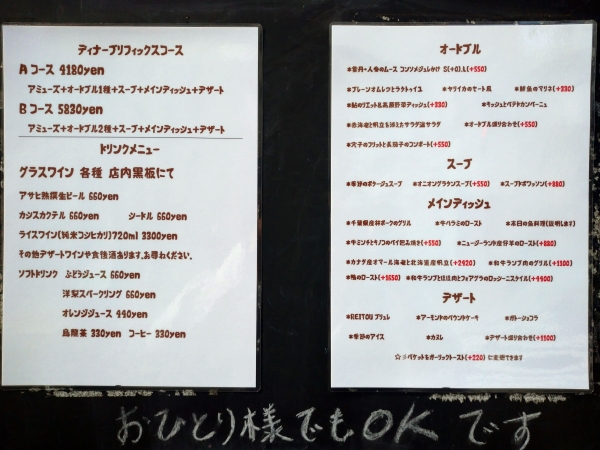 ディナープリフィックスコース
Aコース 4180yen
アミューズ+オードブル1種+スープ+メインディッシュ+デザート
Bコース 5830yen
アミューズ+オードブル2種+スープ+メインディッシュ+デザート
ドリンクメニュー
グラスワイン 各種 店内黒板にて
アサヒ熟撰生ビール 660yen
カシスカクテル 660yen シードル 660yen
ライスワイン(純米コシヒカリ)720ml 3300yen
その他デザートワインや食後酒あります。お尋ねください。
ソフトドリンク ぶどうジュース 660yen
洋梨スパークリング 660yen
オレンジジュース 440yen
烏龍茶 330yen コーヒー 330yen
オードブル
*雲丹・人参のムース コンソメジュレがけ S(+0).L(+550)
*プレーンオムレツとラタトゥイユ *ヤリイカのモート風 *鮮魚のマリネ(+330)
*鮎のリエット&高原野菜ディッシュ(+330) *モッシュとパテドカンパーニュ
*赤海老と帆立を添えたサラダ *オードブル盛り合わせ(+550)
*穴子のフリットと長茄子のコンポート(+550)
スープ
*季節のポタージュスープ *オニオングラタンスープ(+550) *スープドポワッソン(+880)
メインディッシュ
*千葉県産林ポークのグリル *牛ハラミのロースト *本日の魚料理(説明します)
*牛ミンチとキノコのパイ包み焼き(+550) *ニュージーランド産仔羊のロースト(+880)
*カナダ産オマール海老と北海道産帆立(+2420) *和牛ランプ肉のグリル(+1100)
*鴨のロースト(+1650) *和牛ランプとほほ肉とフォアグラのロッシーニスタイル(+4400)
デザート
*REITOU ブリュレ *アーモンドのパウンドケーキ *ガトーショコラ
*季節のアイス *カヌレ *デザート盛り合わせ(+1100)
☆バケットをガーリックトースト(+220)に変更できます
おひとり様でもOKです